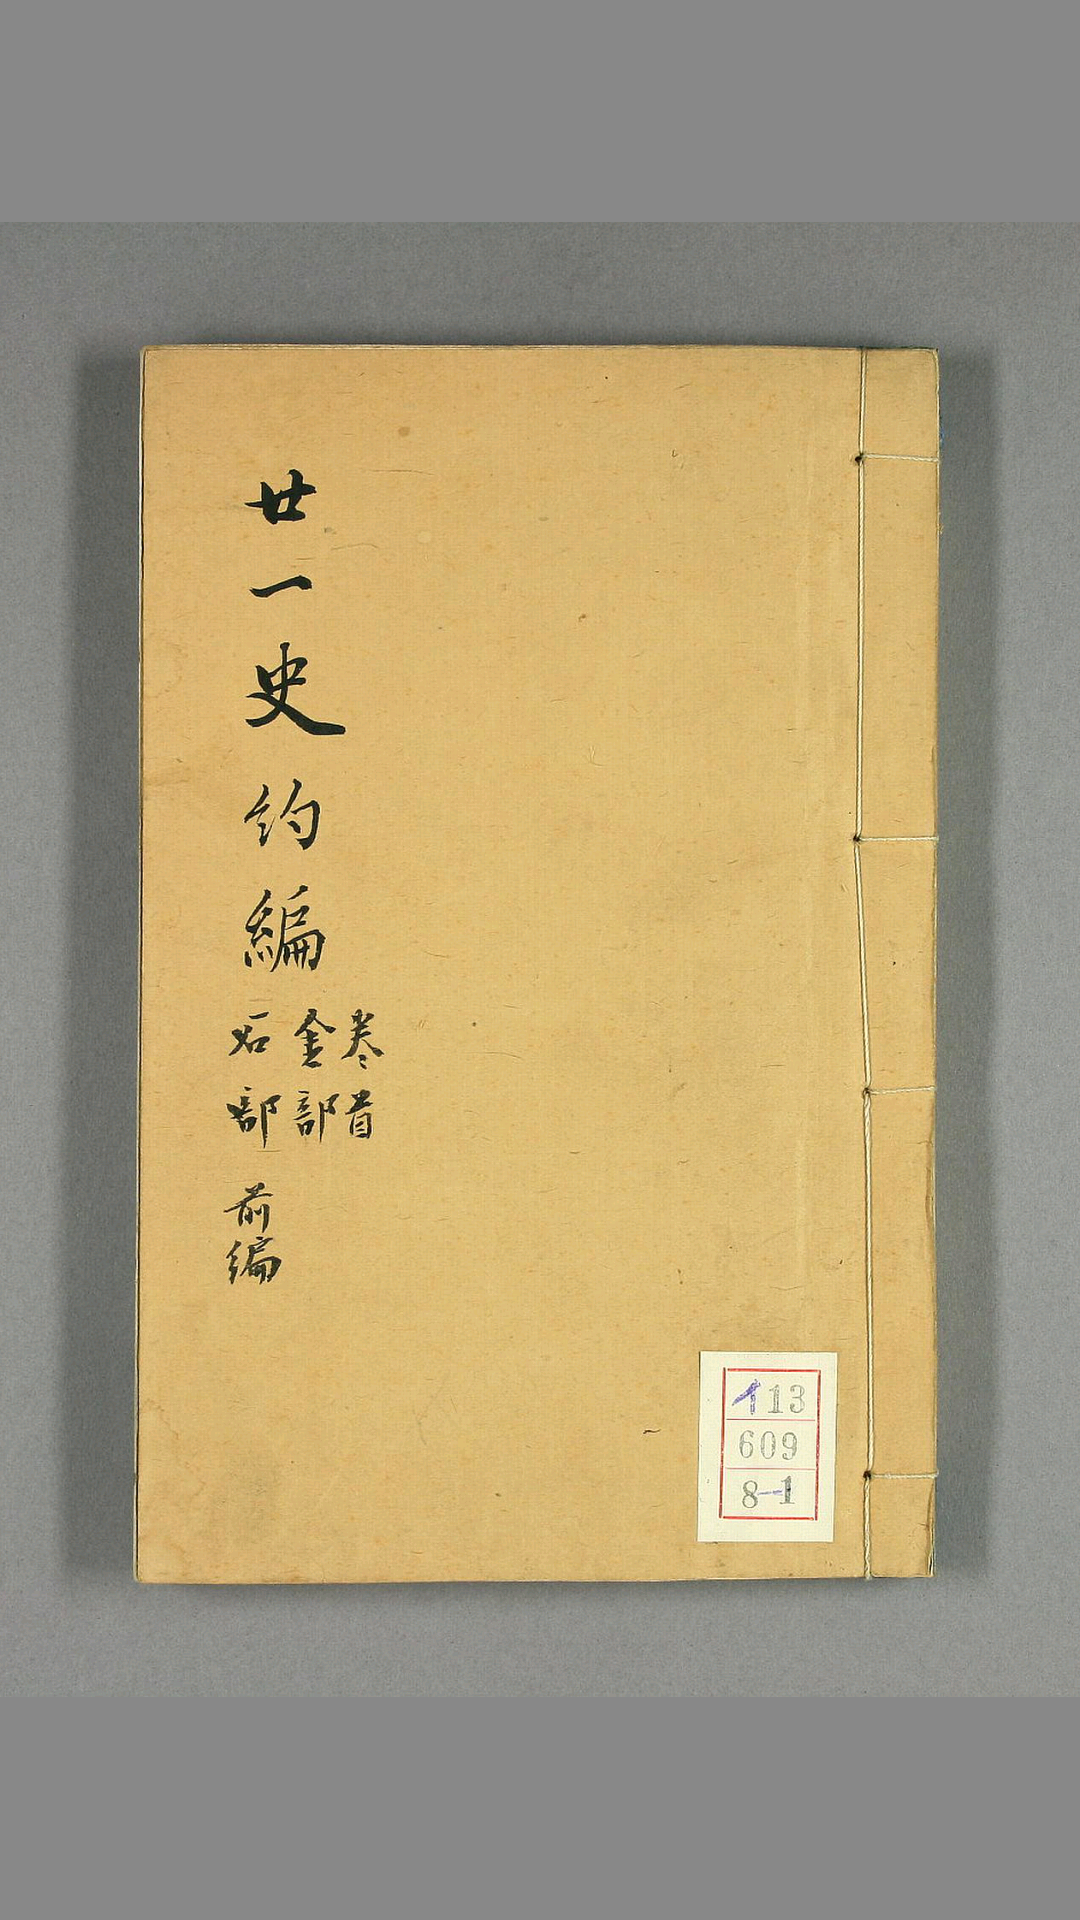 廿一史约編
卷首
金部
石部 前编
113
609
8-1